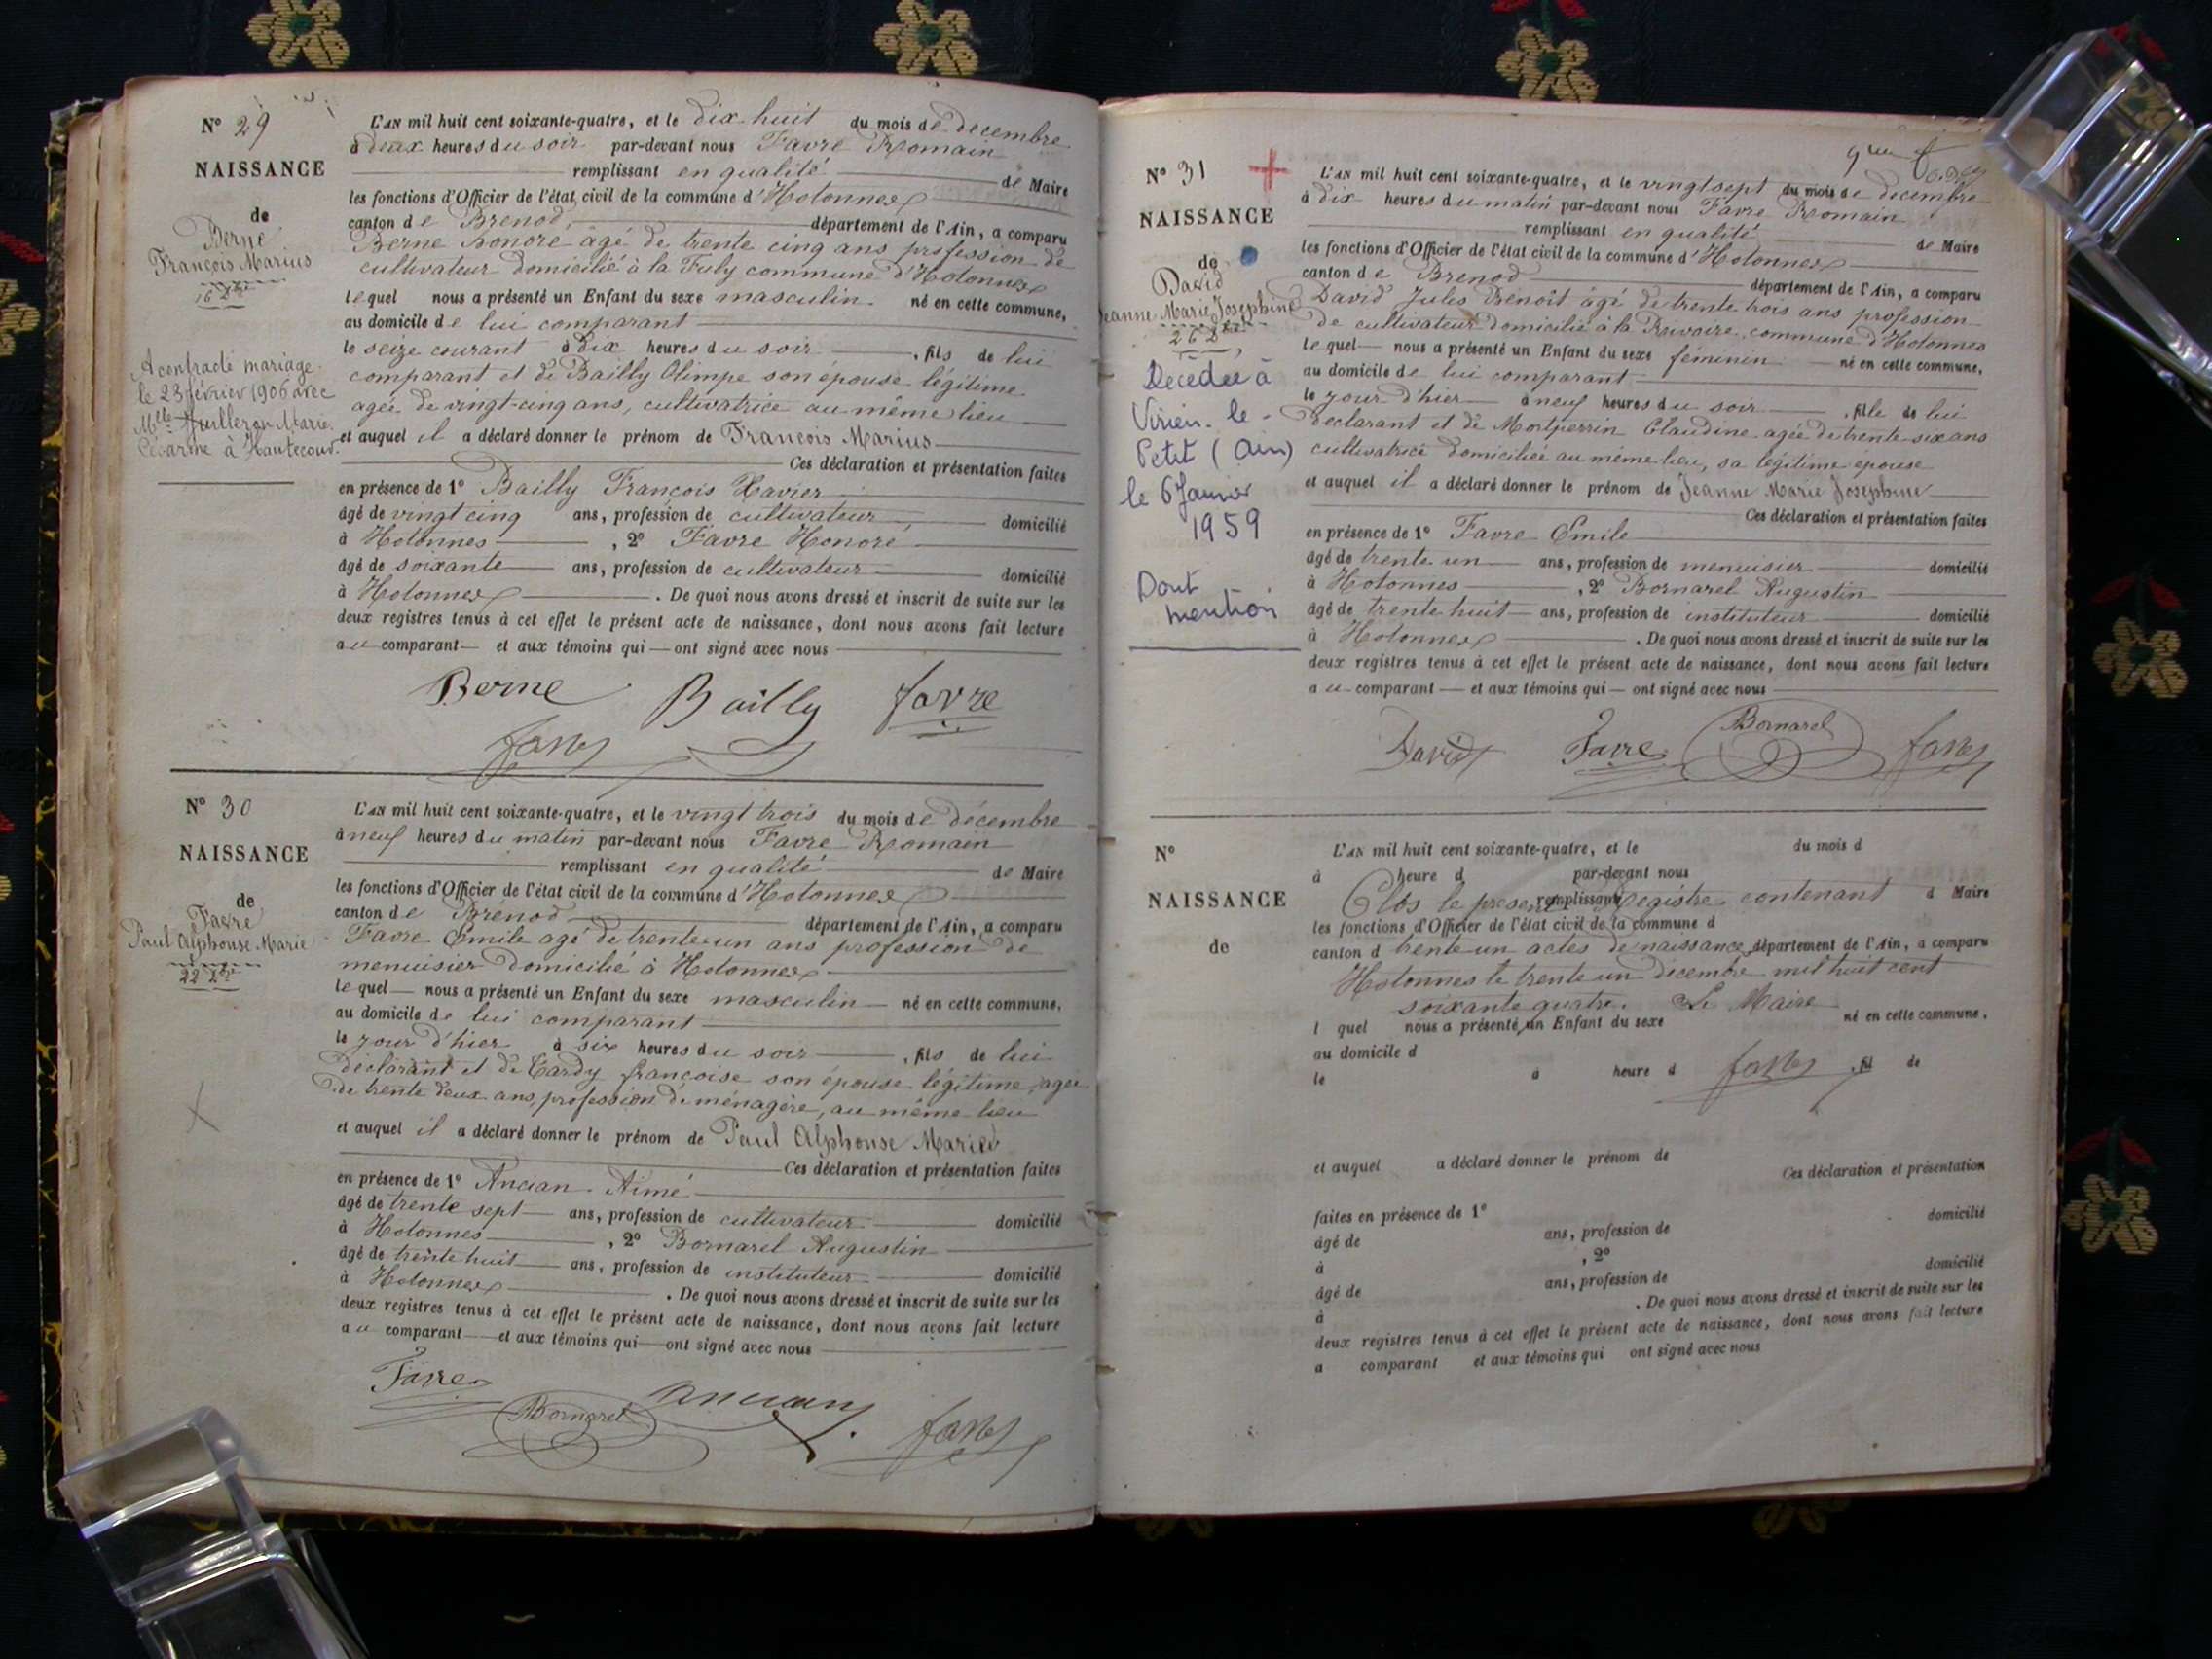 N° 29
NAISSANCE
de
Berne
François Marius
16 Dbre
A contracté mariage
le 23 février 1906 avec
Melle Marie
à Hautecour.
L'AN mil huit cent soixante-quatre, et le dix huit du mois de decembre
à deux heures du soir par-devant nous Favre Romain
remplissant en qualité de Maire
les fonctions d'Officier de l'état civil de la commune d'Hotonnes
canton de Brenod, département de l'Ain, a comparu
Berne honoré âgé de trente cinq ans profession de
cultivateur domicilié à la Fuly commune d'Hotonnes
lequel nous a présenté un Enfant du sexe masculin né en cette commune,
au domicile de lui comparant
le seize courant à dix heures du soir, fils de lui
comparant et de Bailly Olimpe son épouse légitime
agée de vingt-cinq ans, cultivatrice au même lieu
et auquel il a déclaré donner le prénom de François Marius
Ces déclaration et présentation faites
en présence de 1° Bailly François Xavier
âgé de vingt cinq ans, profession de cultivateur, domicilié
à Hotonnes, 2° Favre Honoré
âgé de soixante ans, profession de cultivateur domicilié
à Hotonnes. De quoi nous avons dressé et inscrit de suite sur les
deux registres tenus à cet effet le présent acte de naissance, dont nous avons fait lecture
au comparant et aux témoins qui ont signé avec nous
Berne Bailly favre
favre
N° 30
NAISSANCE
de
Favre
Paul Alphonse Marie
22 Dbre
L'AN mil huit cent soixante-quatre, et le vingt trois du mois de décembre
à neuf heures du matin par-devant nous Favre Romain
remplissant en qualité de Maire
les fonctions d'Officier de l'état civil de la commune d'Hotonnes
canton de Brénod département de l'Ain, a comparu
Favre Emile agé de trente un ans profession de
menuisier domicilié à Hotonnes
lequel nous a présenté un Enfant du sexe masculin né en cette commune,
au domicile de lui comparant
le jour d'hier à six heures du soir, fils de lui
déclarant et de Tardy françoise son épouse légitime, agée
de trente deux ans, profession de ménagère, au même lieu
et auquel il a déclaré donner le prénom de Paul Alphonse Marie
Ces déclaration et présentation faites
en présence de 1° Ancian Aimé
âgé de trente sept ans, profession de cultivateur domicilié
à Hotonnes, 2° Bornarel Augustin
âgé de trente huit ans, profession de instituteur domicilié
à Hotonnes. De quoi nous avons dressé et inscrit de suite sur les
deux registres tenus à cet effet le présent acte de naissance, dont nous avons fait lecture
au comparant et aux témoins qui ont signé avec nous
Favre
Bornarel ancian favre
N° 31
NAISSANCE
de
David
Jeanne Marie Josephine
26 Dbre
Décédée à
Virieu-le-
Petit (Ain)
le 6 Janvier
1959
Dont
mention
L'AN mil huit cent soixante-quatre, et le vingt sept du mois de décembre
à dix heures du matin par-devant nous Favre Romain
remplissant en qualité de Maire
les fonctions d'Officier de l'état civil de la commune d'Hotonnes
canton de Brenod département de l'Ain, a comparu
David Jules Benoît âgé de trente trois ans profession
de cultivateur domicilié à la Rivoire commune d'Hotonnes
lequel nous a présenté un Enfant du sexe féminin né en cette commune,
au domicile de lui comparant
le jour d'hier à neuf heures du soir, fille de lui
declarant et de Montperrin Claudine agée de trente-six ans
cultivatrice domiciliée au même lieu, sa légitime épouse
et auquel il a déclaré donner le prénom de Jeanne Marie Josephine
Ces déclaration et présentation faites
en présence de 1° Favre Emile
âgé de trente un ans, profession de menuisier domicilié
à Hotonnes, 2° Bornarel Augustin
âgé de trente huit ans, profession de instituteur domicilié
à Hotonnes. De quoi nous avons dressé et inscrit de suite sur les
deux registres tenus à cet effet le présent acte de naissance, dont nous avons fait lecture
au comparant et aux témoins qui ont signé avec nous
David Favre Bornarel favre
N°
NAISSANCE
de
L'AN mil huit cent soixante-quatre, et le du mois d
à heure d par-devant nous
remplissant d Maire
Clos le présent Registre contenant
les fonctions d'Officier de l'état civil de la commune d
canton d département de l'Ain, a comparu
trente-un actes de naissance
Hotonnes le trente un décembre mil huit cent
soixante quatre. Le Maire
l quel nous a présenté un Enfant du sexe né en cette commune,
au domicile d
le à heure d , fil de
favre
et auquel a déclaré donner le prénom de
Ces déclaration et présentation
faites en présence de 1°
âgé de ans, profession de domicilié
à , 2°
âgé de ans, profession de domicilié
à . De quoi nous avons dressé et inscrit de suite sur les
deux registres tenus à cet effet le présent acte de naissance, dont nous avons fait lecture
a comparant et aux témoins qui ont signé avec nous